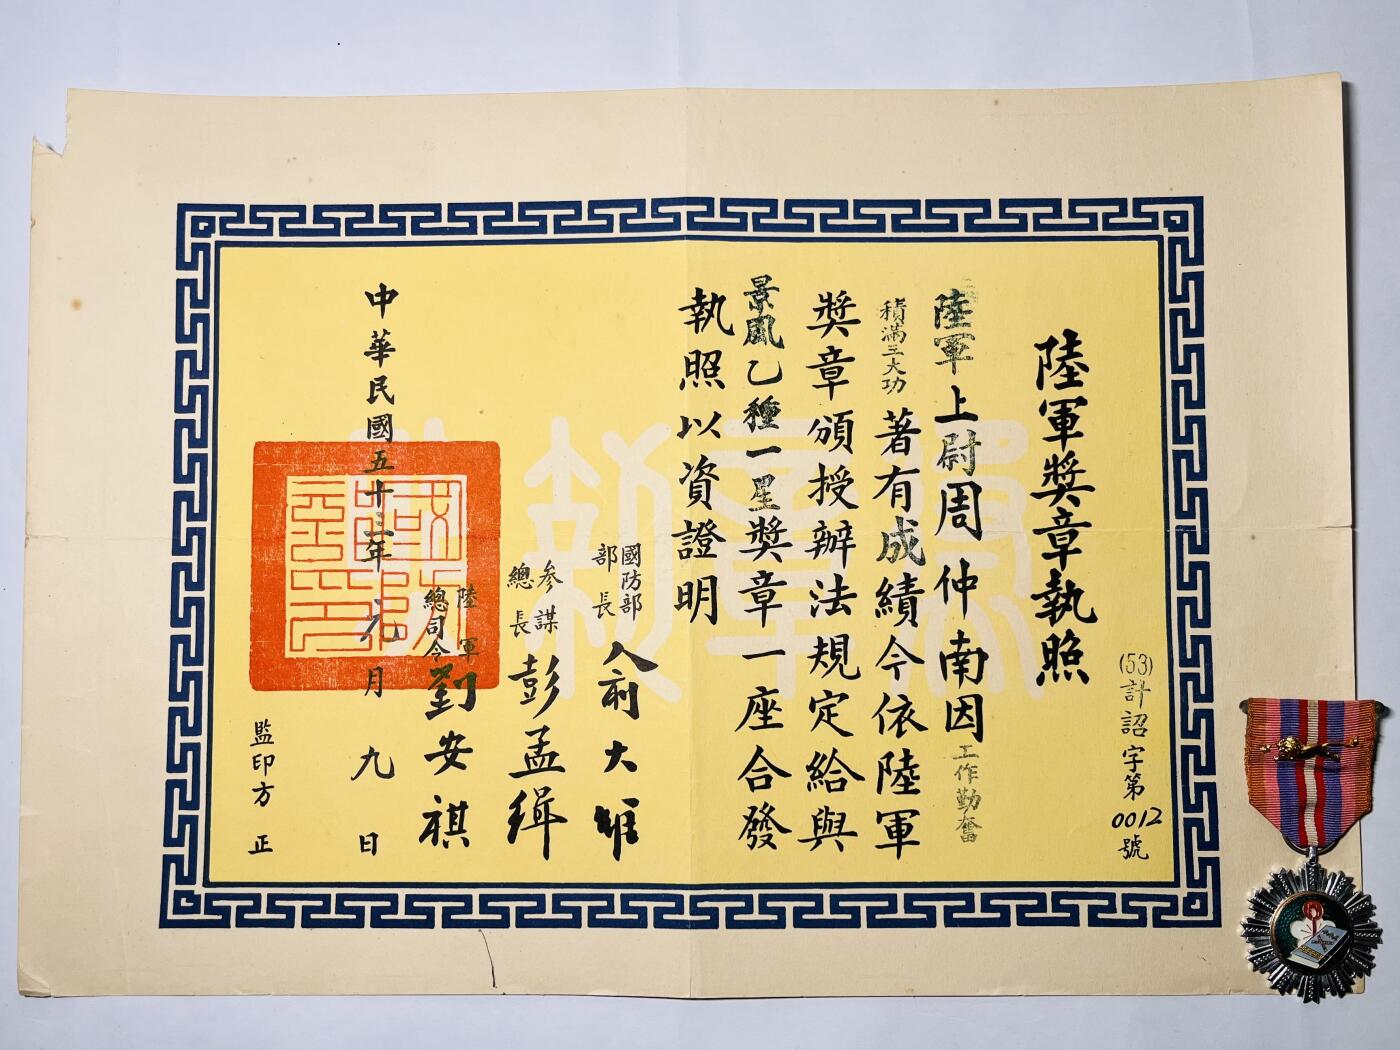 陸軍獎章執照
(53)計詔字第0012號
陸軍上尉周仲南因工作勤奮
積滿三大功著有成績今依陸軍
獎章頒授辦法規定給與
景風乙種一星獎章一座合發
執照以資證明
國防部部長俞大維
參謀總長彭孟緝
陸軍總司令劉安祺
中華民國五十三年元月九日
監印方正